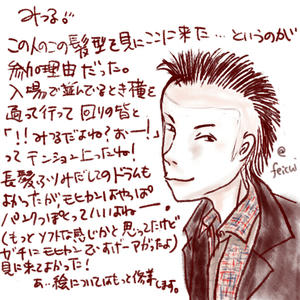 みつる。
この人のこの髪型を見にここに来た…というのが
参加理由だった。
入場で並んでるとき俺を
通って行って 回りの皆と
「!!みつるだよね?おー!」
って テンション上ったね!
長髪ふりみだしてのドラムも
よかったがモヒカンはやっぱ
パンクっぽくっていいよねー。
(もっとソフトな感じかと思ってたけど
ガチにモヒカンですげーアガったよ)
見に来てよかった!
あぁ、絵についてはもっと修業します。
@
feicw